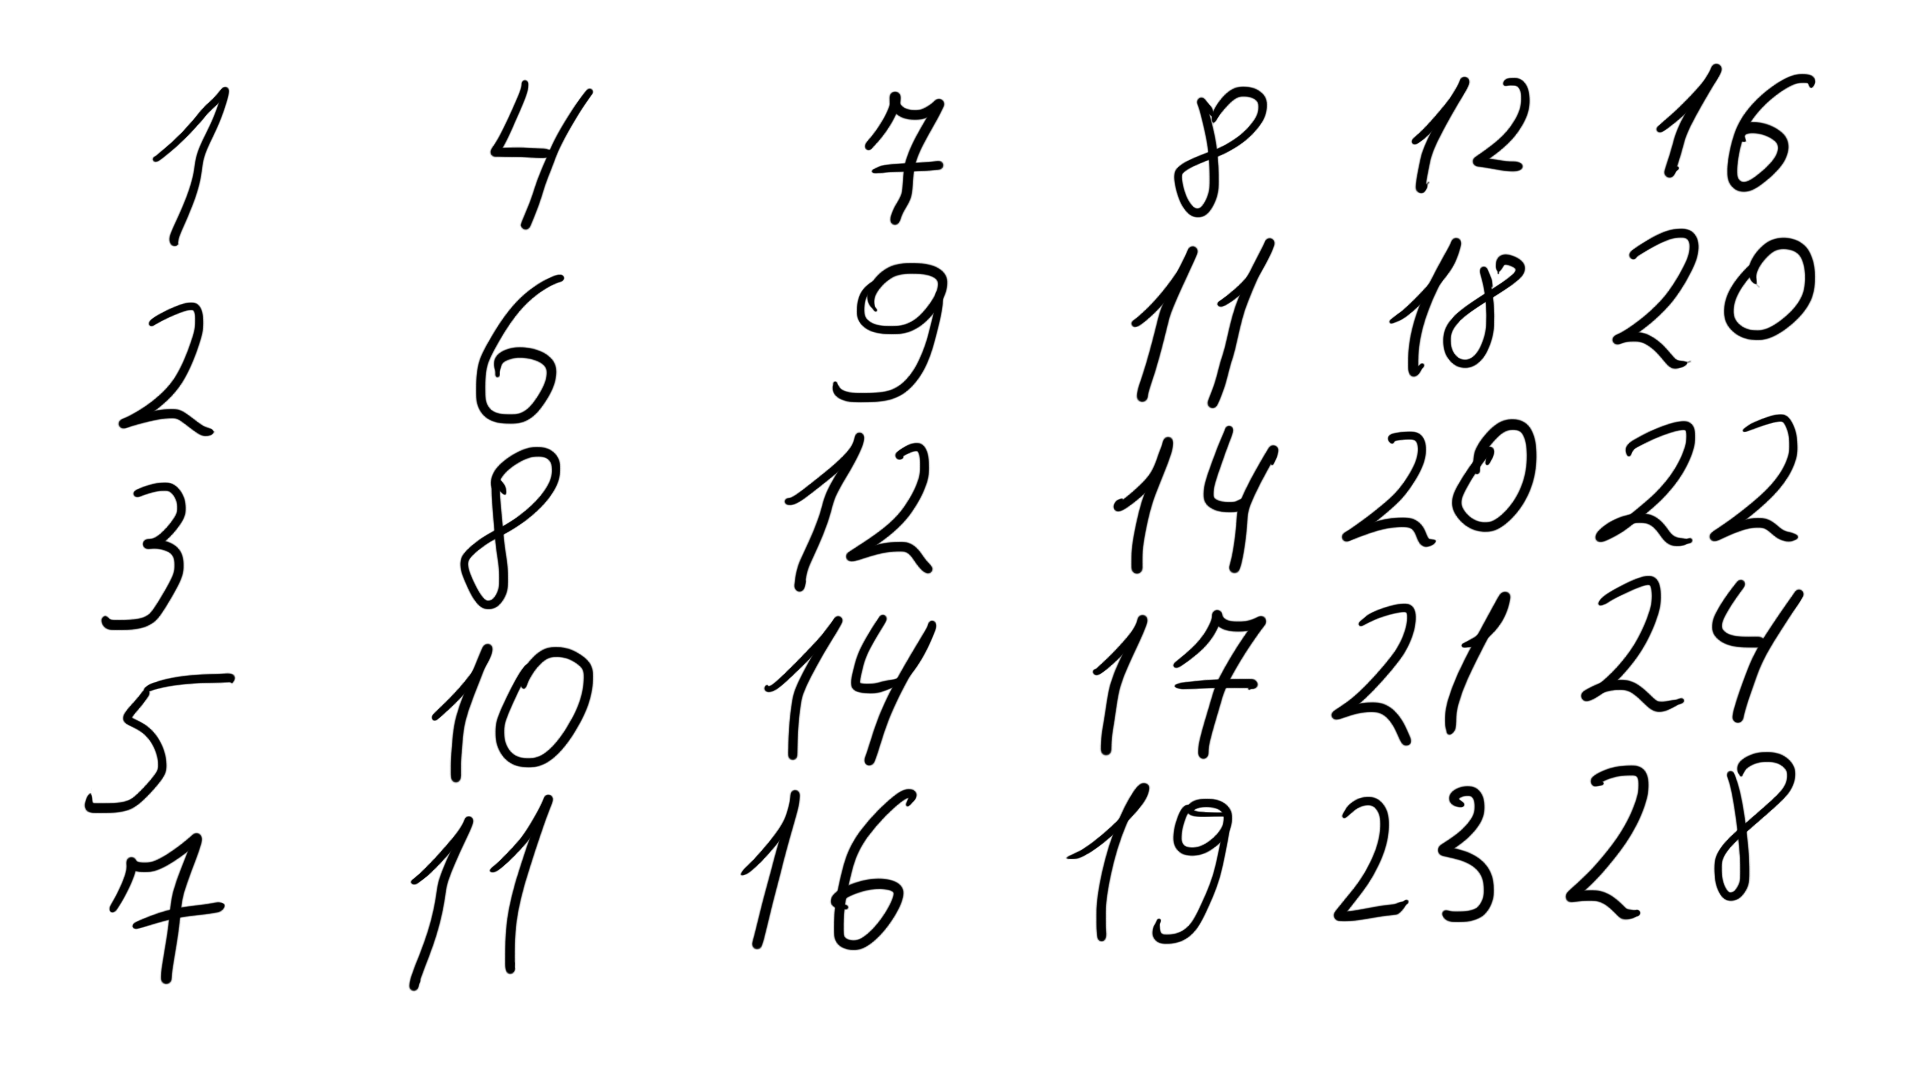 1 4 7 8 12 16
2 6 9 11 18 20
3 8 12 14 20 22
5 10 14 17 21 24
7 11 16 19 23 28